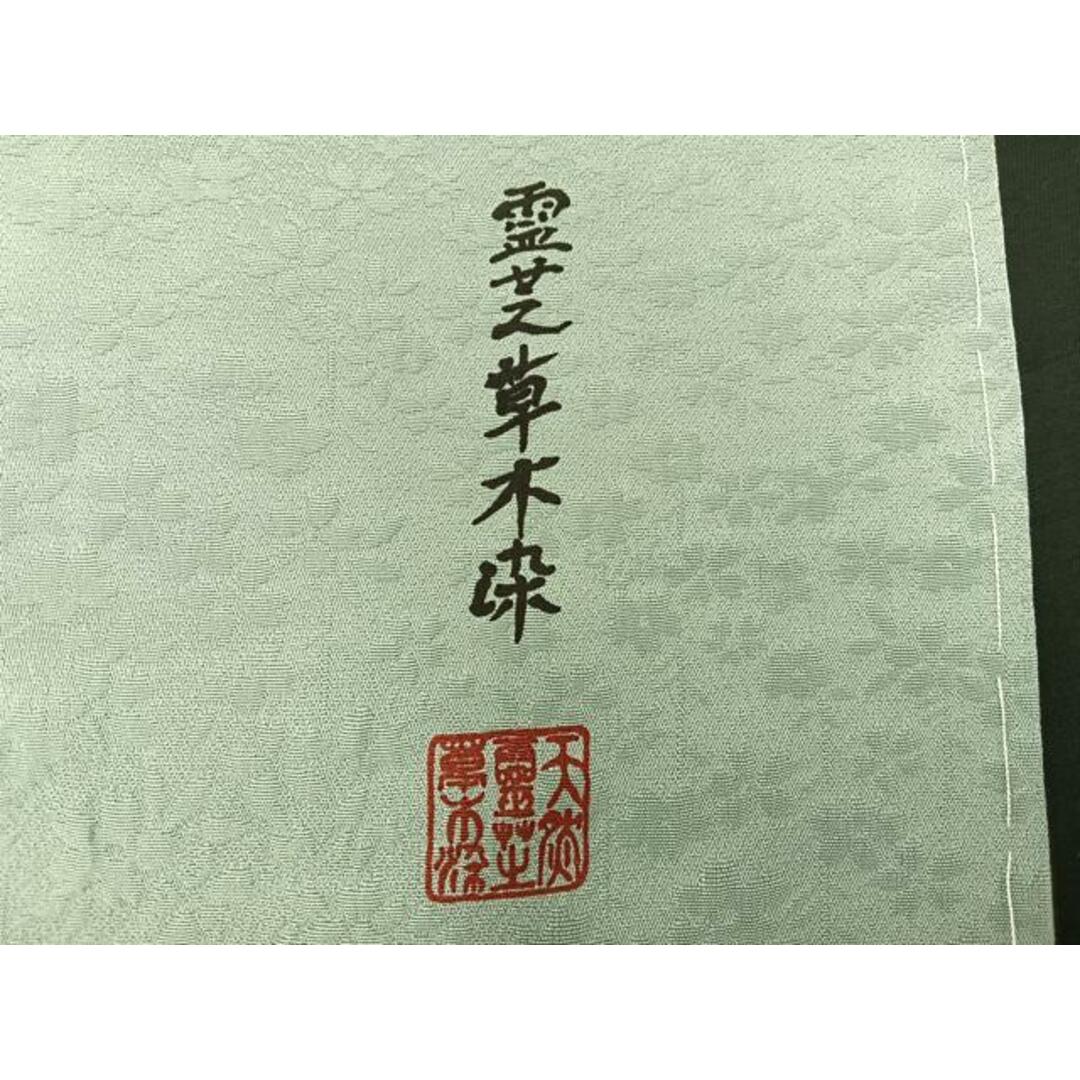 霊芝草木染
天然
靈芝
草木染